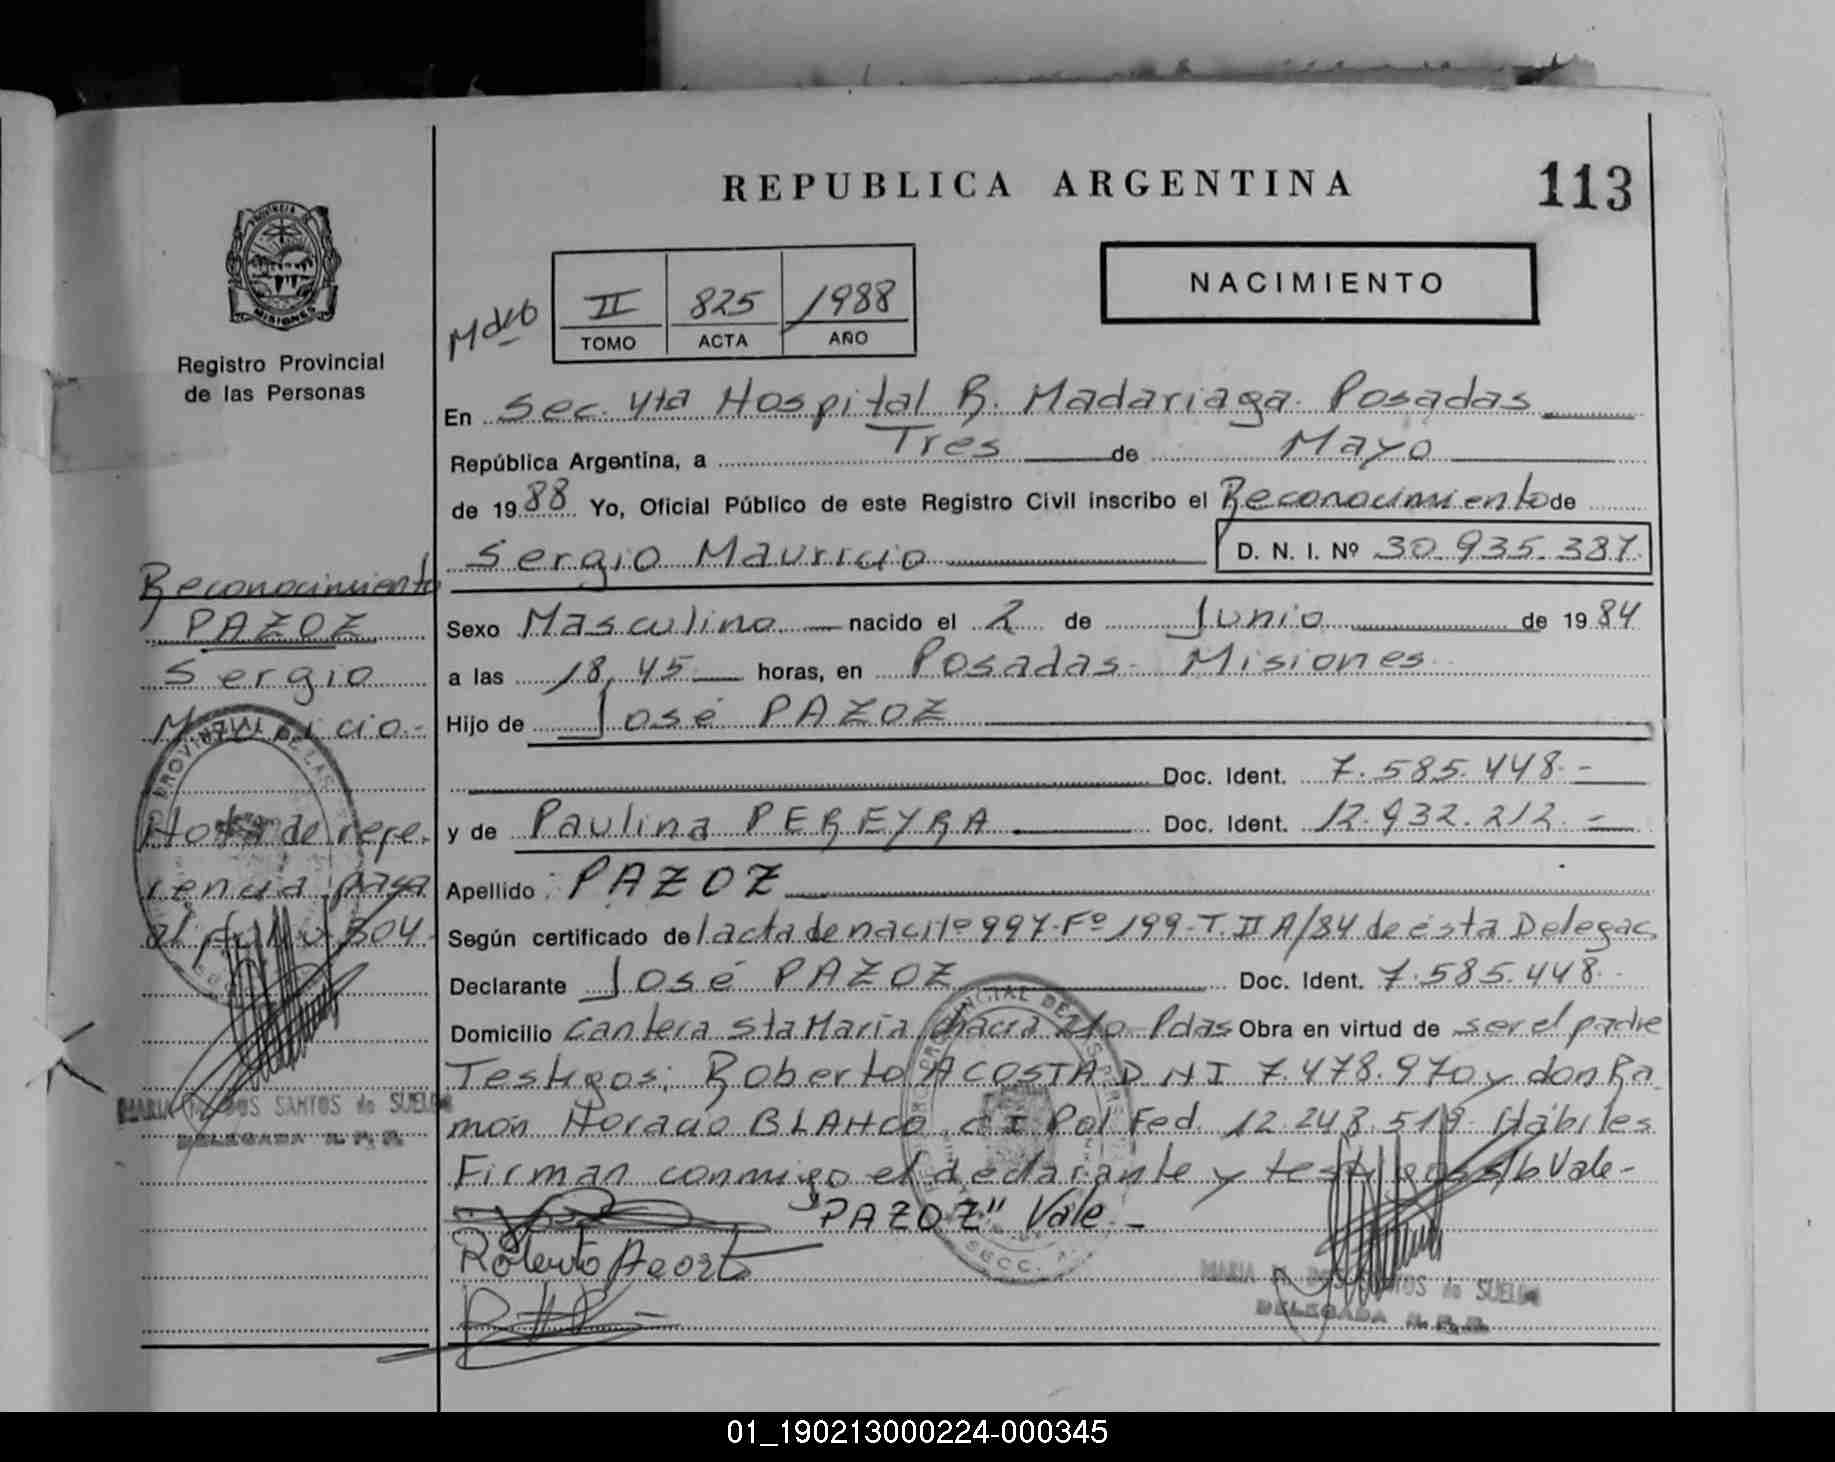 REPUBLICA ARGENTINA
113
NACIMIENTO
II 825 1988
TOMO ACTA AÑO
PROVINCIA DE
MISIONES
Registro Provincial
de las Personas
En Sec. 4ta Hospital R. Madariaga. Posadas
República Argentina, a Tres de Mayo
de 1988 Yo, Oficial Público de este Registro Civil inscribo el Reconocimiento de
Sergio Mauricio D. N. I. Nº 30.935.387.
Sexo Masculino nacido el 2 de Junio de 1984
a las 18,45 horas, en Posadas- Misiones
Hijo de José PAZOZ
Doc. Ident. 7.585.448.-
y de Paulina PEREYRA Doc. Ident. 12.932.212.-
Apellido PAZOZ
Según certificado de lacta de nacito 997-Fº 199-T. II A/84 de ésta Delegac
Declarante José PAZOZ Doc. Ident. 7.585.448.
Domicilio cantera Sta María chacra Pdas Obra en virtud de ser el padre
Testigos: Roberto ACOSTA D N I 7.478.970 y don Ra
món Horacio BLANCO C I Pol Fed. 12.248.519. Hábiles
Firman conmigo el declarante y testigos s/b Vale-
"PAZOZ" Vale.-
Roberto Acost
MARIA DOS SANTOS de SUELDO
DELEGADA R. P. P.
Reconocimiento
PAZOZ
Sergio
Mauricio.-
Nota de refe-
rencia pasa
al folio 304-
MARIA DOS SANTOS de SUELDO
DELEGADA R. P. P.
01_190213000224-000345